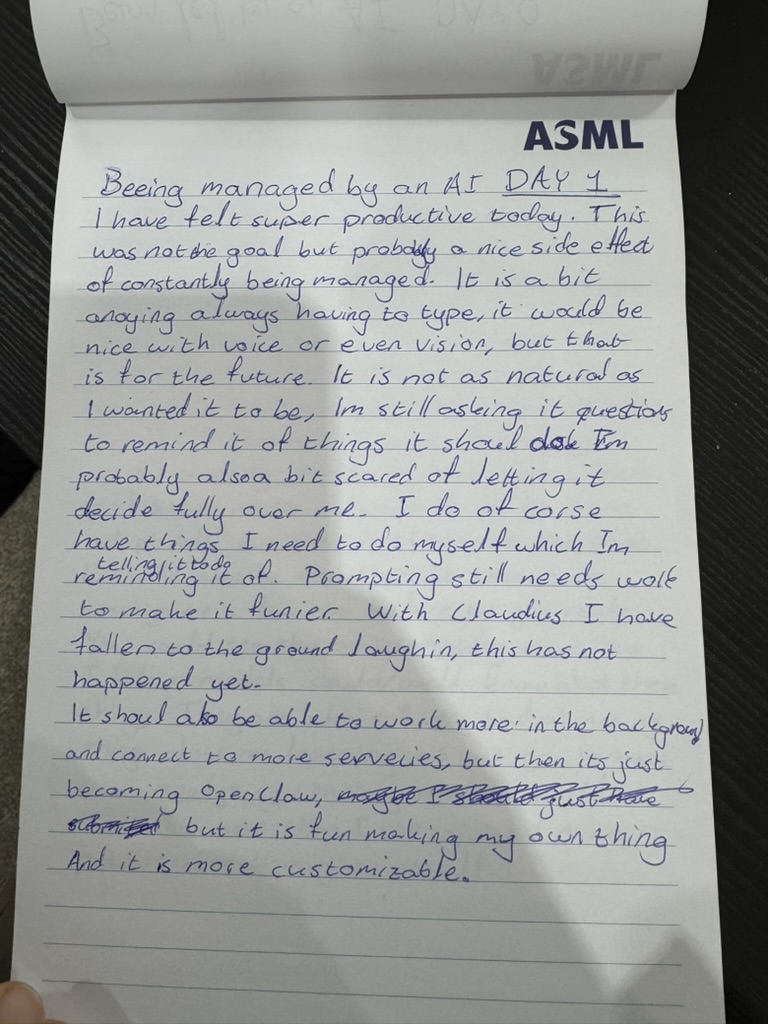 ASML
Beeing managed by an AI DAY 1
I have felt super productive today. This
was not the goal but probably a nice side effect
of constantly being managed. It is a bit
anoying always having to type, it would be
nice with voice or even vision, but that
is for the future. It is not as natural as
I wanted it to be, Im still asking it questions
to remind it of things it shoul do. Im
probably also a bit scared of letting it
decide fully over me. I do of corse
have things I need to do myself which Im
telling it to do
reminding it of. Prompting still needs work
to make it funier. With Claudius I have
fallen to the ground laughin, this has not
happened yet.
It shoul also be able to work more in the background
and connect to more serveries, but then its just
becoming OpenClaw,
but it is fun making my own thing
And it is more customizable.